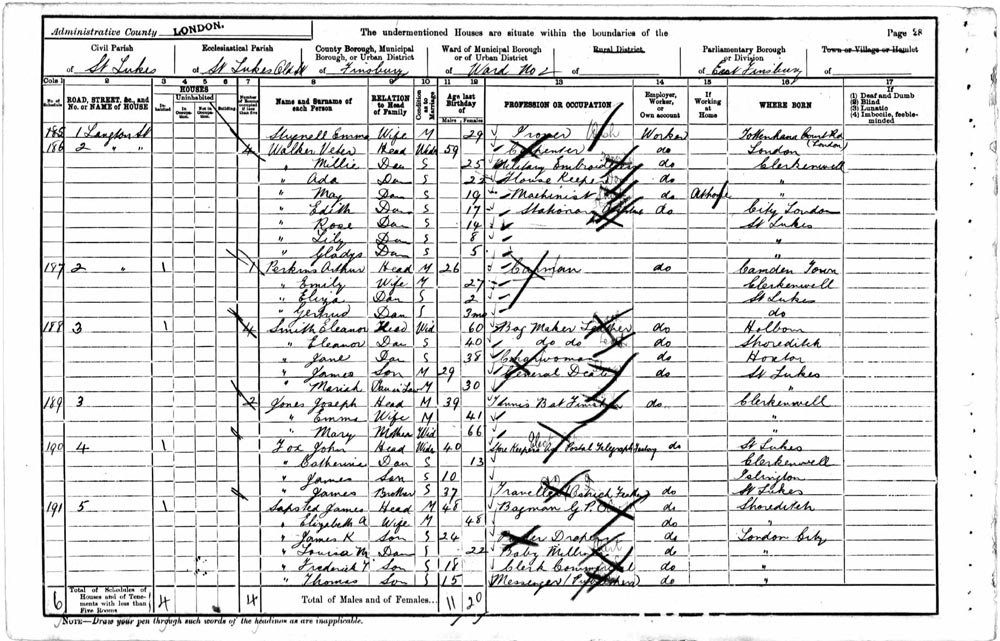 Administrative County LONDON. The undermentioned Houses are situate within the boundaries of the Page 28
Civil Parish Ecclesiastical Parish County Borough, Municipal Borough, or Urban District Ward of Municipal Borough or Urban District Rural District Parliamentary Borough or Division Town or Village or Hamlet
of St Lukes of St Lukes Old St of Finsbury of Ward No 2 of of East Finsbury of
Cols 1 2 3 4 5 6 7 8 9 10 11 12 13 14 15 16 17
No. of Schedule ROAD, STREET, &c., and No. or NAME of HOUSE HOUSES Inhabited Uninhabited In Occupation Not in Occupation Building Number of Rooms occupied if less than five Name and Surname of each Person RELATION to Head of Family Condition as to Marriage Age last Birthday of Males Females PROFESSION OR OCCUPATION Employer, Worker, or Own account If Working at Home WHERE BORN If (1) Deaf and Dumb (2) Blind (3) Lunatic (4) Imbecile, feeble-minded
185 1 Langton St Emma Wife M 29 Worker Tottenham Court Rd (London)
186 2 " " 4 Walker Head Widr 59 Carpenter do London
" Millie Dau S 25 Military Embroidery do Clerkenwell
" Ada Dau S 22 House Keeper do "
" May Dau S 19 Machinist do At home "
" Edith Dau S 17 Stationary do City London
" Rose Dau S 14 St Lukes
" Lily Dau S 8 "
" Gladys Dau S 5 "
187 2 " 1 1 Perkins Arthur Head M 26 Carman do Camden Town
" Emily Wife M 27 Clerkenwell
" Eliza Dau S 2 St Lukes
" Gertrud Dau S 3mo do
188 3 1 4 Smith Eleanor Head Wid 60 Bag Maker Leather do Holborn
" Eleanor Dau S 40 do do do Shoreditch
" Jane Dau S 38 Charwoman do Hoxton
" James Son M 29 General Dealer do St Lukes
" Mariah Dau in Law M 30 "
189 3 2 Jones Joseph Head M 39 Tennis Bat Finisher do Clerkenwell
" Emma Wife M 41 "
" Mary Mother Wid 66 "
190 4 1 Fox John Head Widr 40 Store Keeper Postal Telegraph Factory do St Lukes
" Catherine Dau S 13 Clerkenwell
" James Son S 10 Islington
" James Brother S 37 Traveller (Ostrich Feather) do St Lukes
191 5 1 Sapsted James Head M 48 Bagman G.P. do Shoreditch
" Elizabeth A Wife M 48 do "
" James K Son S 24 Drapery do London City
" Louisa M Dau S 22 Baby Millinery do "
" Frederick T Son S 18 Clerk Commercial do "
" Thomas Son S 15 Messenger do "
6 Total of Schedules of Houses and of Tenements with less than Five Rooms 4 4 Total of Males and of Females... 11 20
NOTE—Draw your pen through such words of the headings as are inapplicable.